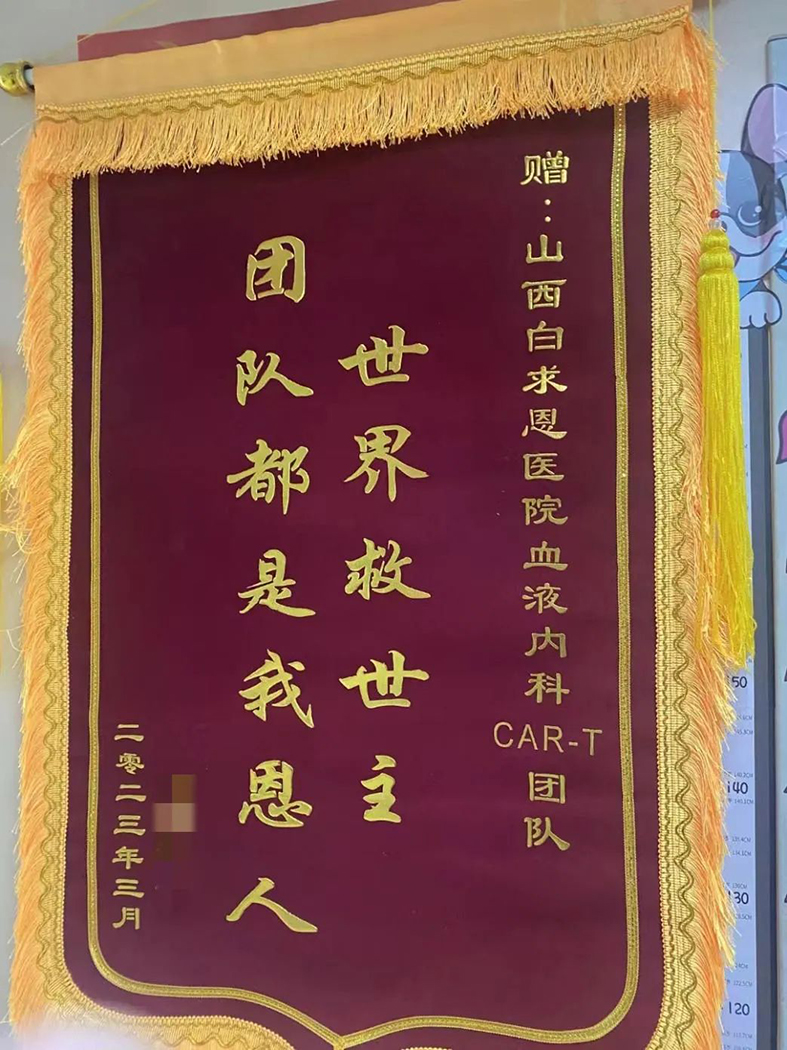 赠:山西白求恩医院血液内科CAR-T团队
世界救世主
团队都是我恩人
二零二三年三月
50
140
130
120